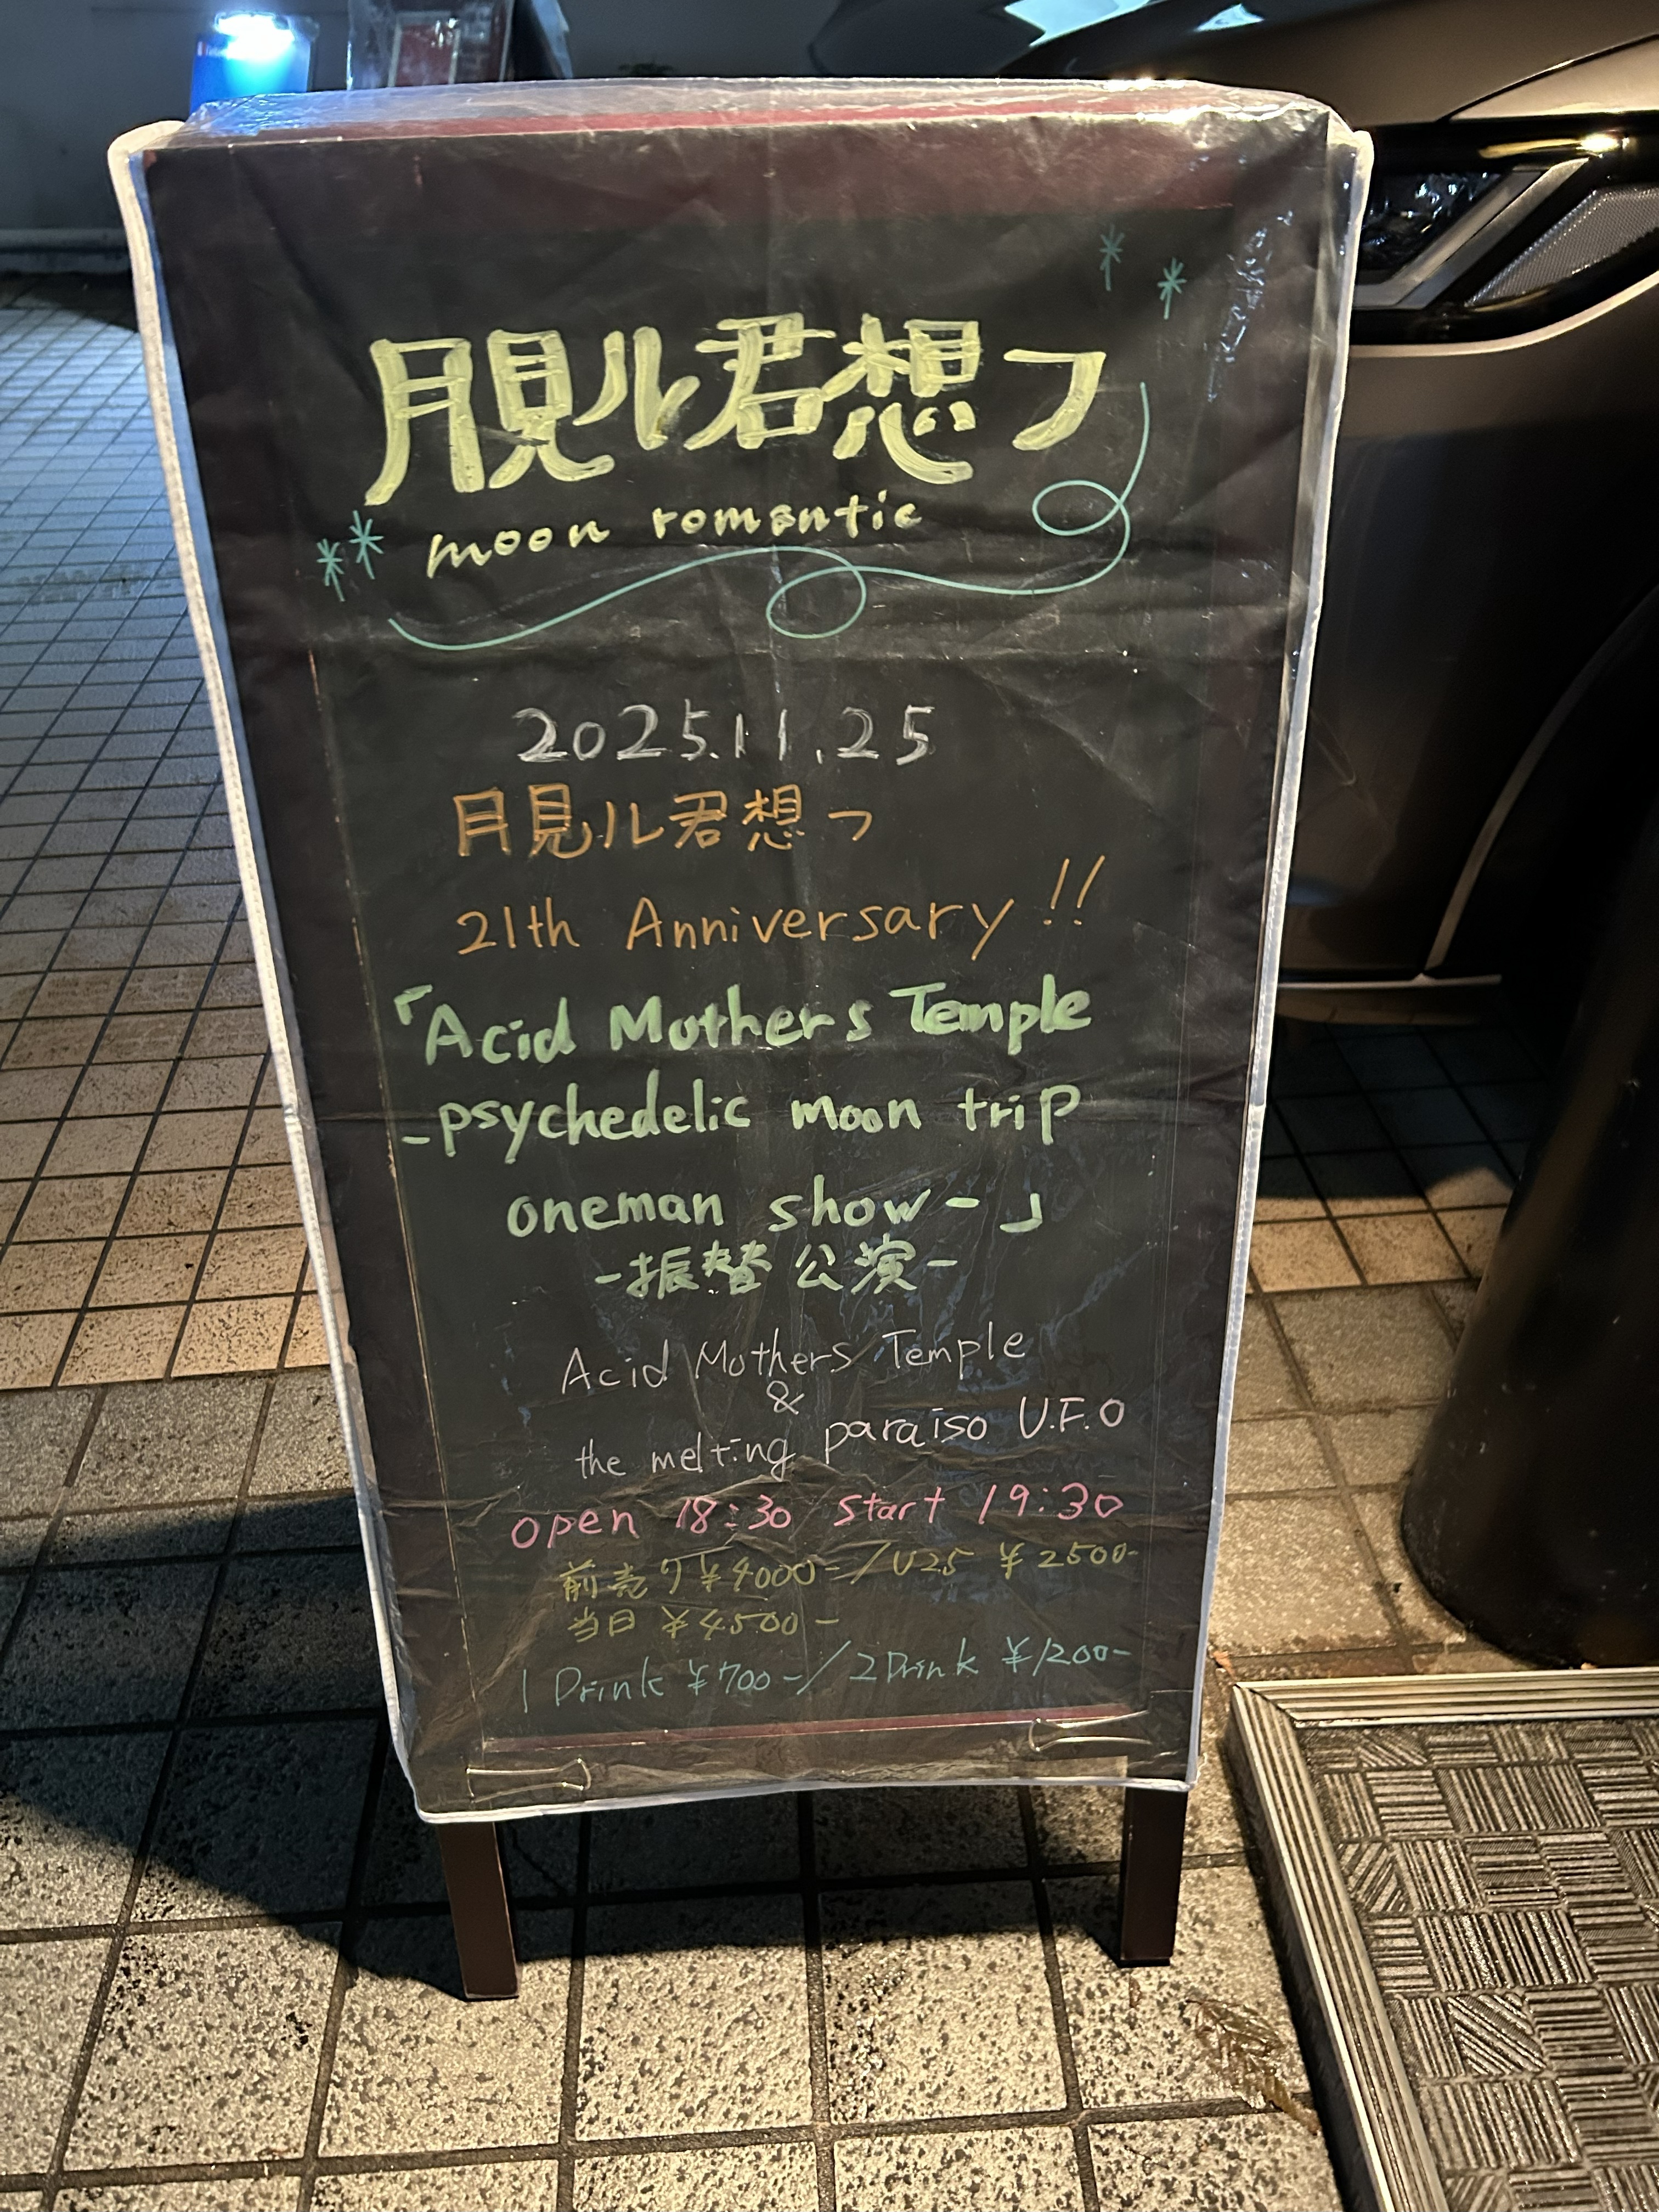 月見ル君想フ
moon romantic
2025.11.25
月見ル君想フ
21th Anniversary!!
「Acid Mothers Temple
-psychedelic moon trip
oneman show-」
-振替公演-
Acid Mothers Temple
&
the melting paraiso U.F.O
open 18:30 start 19:30
前売り¥4000-/U25 ¥2500-
当日 ¥4500-
1 Drink ¥700-/2Drink ¥1200-